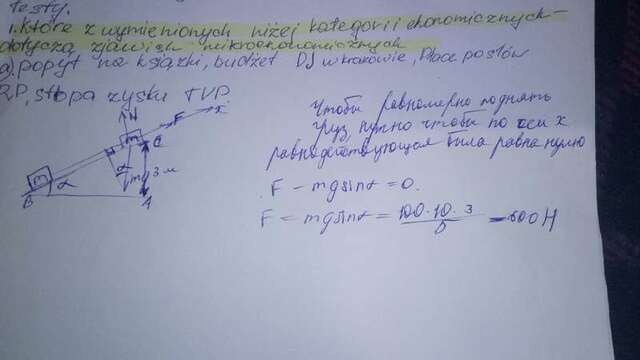 Testy.
1. Które z wymienionych niżej kategorii ekonomicznych
dotyczą zjawisk mikroekonomicznych
a) popyt na książki, budżet DJ w krakowie, Płace posłów
RP, stopa zysku TVP
N
F
x
m
C
α
mg
3 м
m
α
B
A
Чтобы равномерно поднять
груз, нужно чтобы по оси x
равнодействующая была равна нулю
F - mg sinα = 0.
F = mg sinα = 100·10·3
= 600 Н